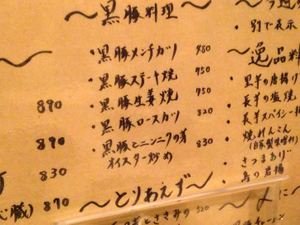 〜黒豚料理〜
・黒豚メンチカツ 980
・黒豚ステーキ焼 950
・黒豚生姜焼 950
・黒豚ロースカツ 820
・黒豚とニンニクの芽 830
オイスター炒め
〜とりあえず〜
890
890
830
870
別で表示
〜逸品料
・里芋の唐揚げ
・長芋の塩焼
・長芋スパイシー
・焼れんこん
(自家製味噌
・さつまあげ
・鳥の岩塩
〜〆